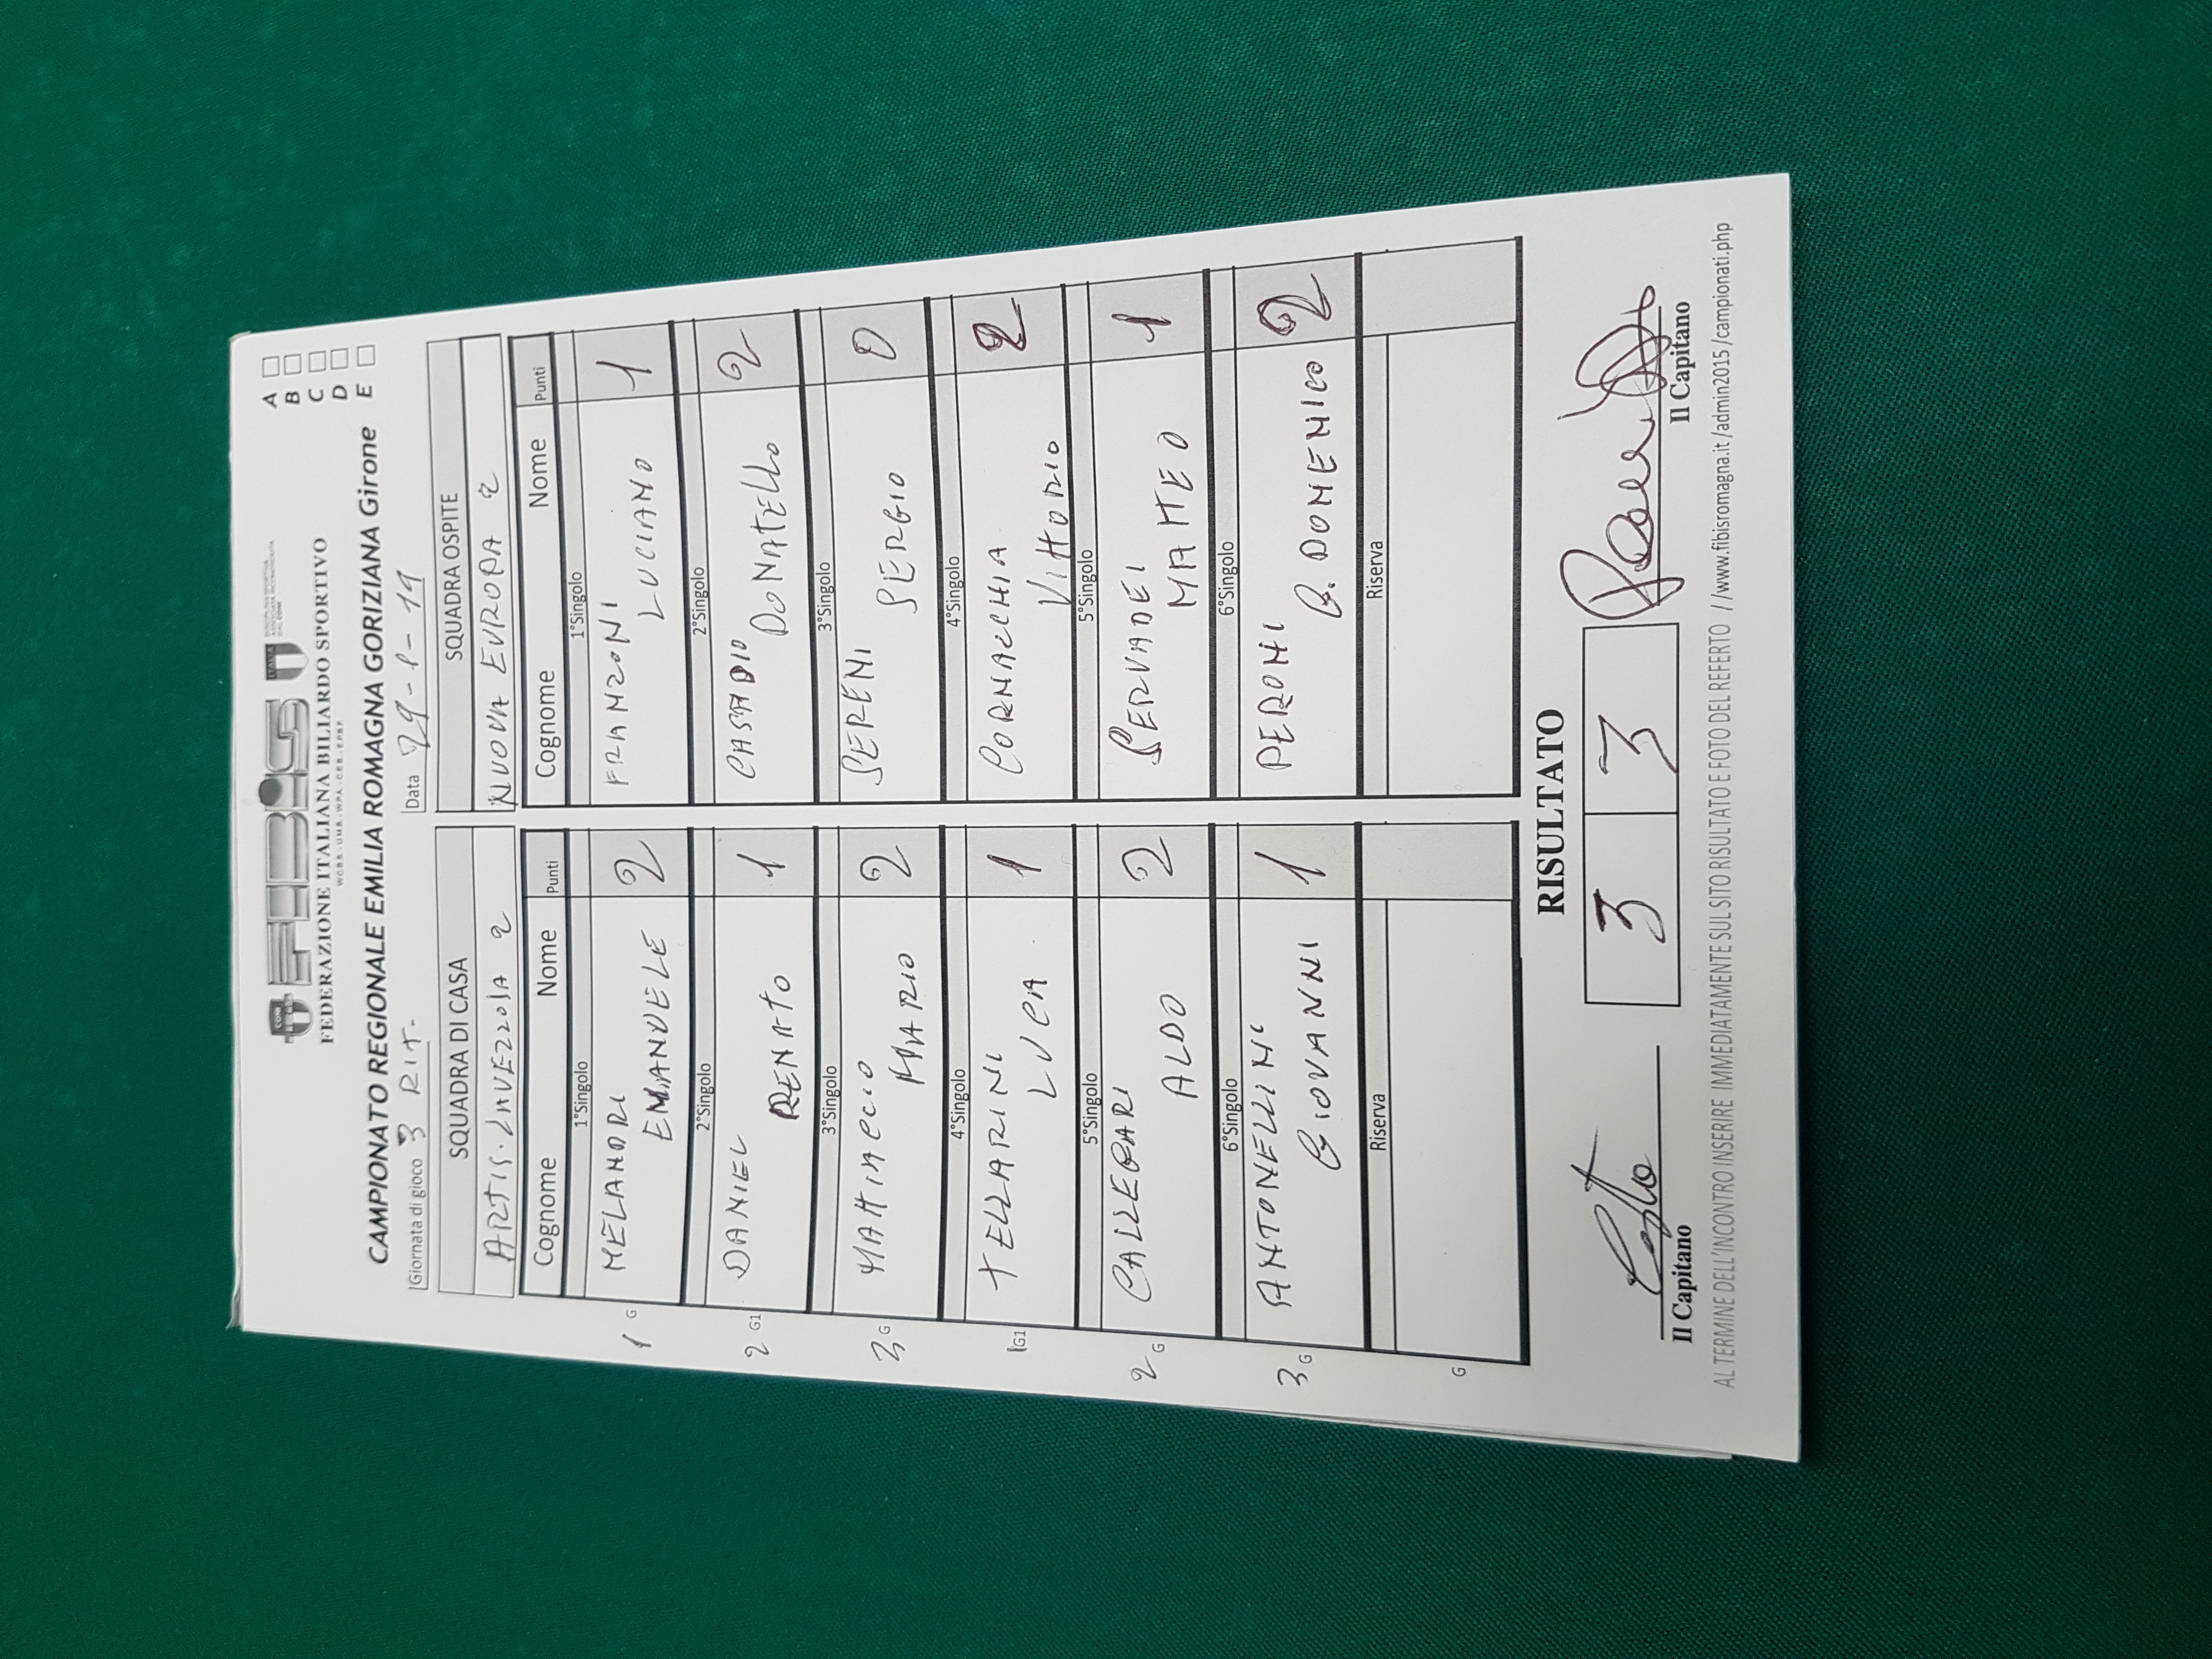 FIBIS
FEDERAZIONE ITALIANA BILIARDO SPORTIVO
CAMPIONATO REGIONALE EMILIA ROMAGNA GORIZIANA Girone
A
B
C
D
E
Giornata di gioco 3 RIT.
Data 29-1-19
SQUADRA DI CASA
SQUADRA OSPITE
NUOVA EUROPA 2
Cognome Nome Punti
Cognome Nome Punti
1°Singolo
1°Singolo
1 G MELANDRI EMANUELE 2
FRANZONI LUCIANO 1
2°Singolo
2°Singolo
2 G1 DANIEL RENATO 1
CASADIO DONATELLO 2
3°Singolo
3°Singolo
3 G MATTIACCIO MARIO 2
SERENI SERGIO 0
4°Singolo
4°Singolo
1 G1 TELLARINI LUCA 1
CORNACCHIA VITTORIO 2
5°Singolo
5°Singolo
2 G CALLEGARI ALDO 2
SERVADEI MATTEO 1
6°Singolo
6°Singolo
3 G ANTONELLINI GIOVANNI 1
PERONI G. DOMENICO 2
Riserva
Riserva
G
RISULTATO
3 3
Il Capitano
Il Capitano
AL TERMINE DELL'INCONTRO INSERIRE IMMEDIATAMENTE SUL SITO RISULTATO E FOTO DEL REFERTO //www.fibisromagna.it/admin2015/campionati.php